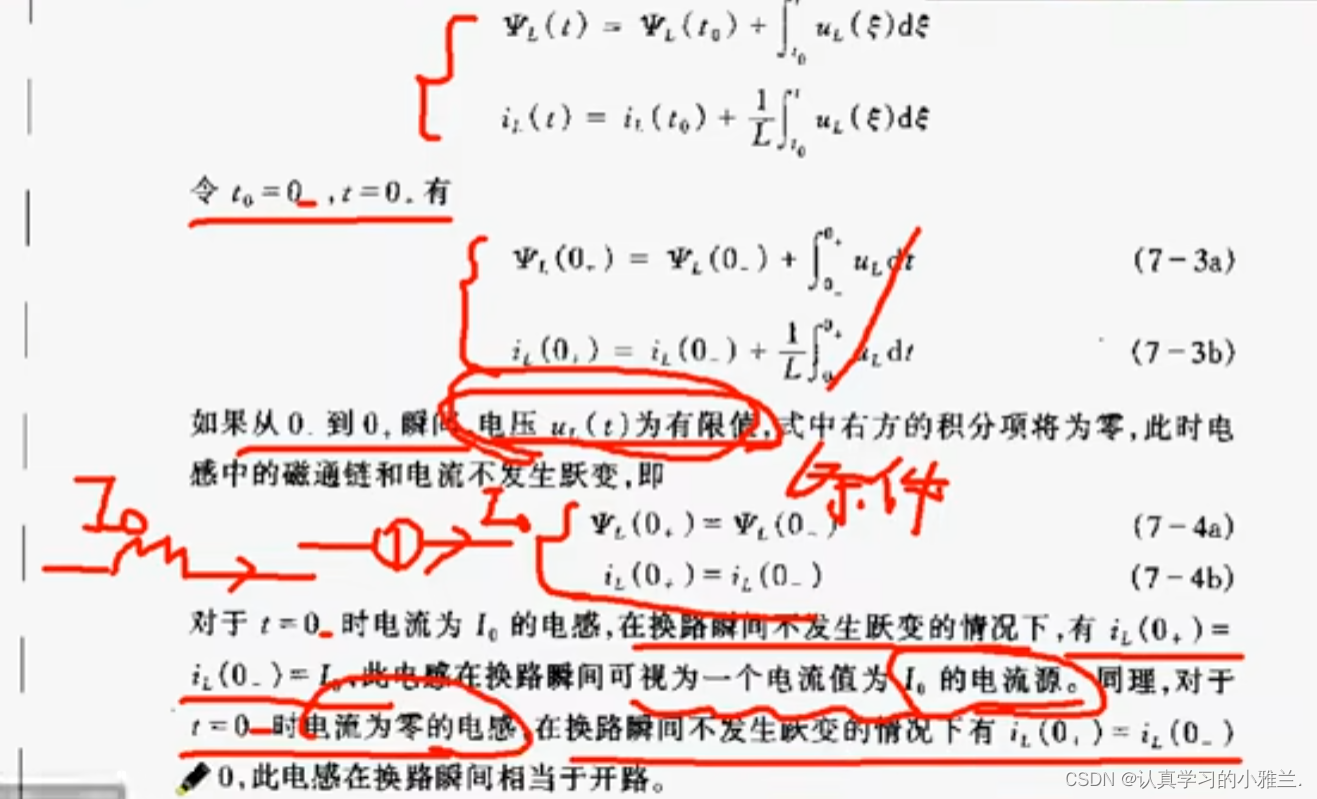 Ψ_L(t) = Ψ_L(t₀) + ∫_{t₀}^{t} u_L(ξ)dξ
i_L(t) = i_L(t₀) + 1/L ∫_{t₀}^{t} u_L(ξ)dξ
令 t₀=0₋,t=0₊有
Ψ_L(0₊) = Ψ_L(0₋) + ∫_{0₋}^{0₊} u_L dt (7-3a)
i_L(0₊) = i_L(0₋) + 1/L ∫_{0₋}^{0₊} u_L dt (7-3b)
如果从0₋到0₊瞬间,电压 u_L(t)为有限值,式中右方的积分项将为零,此时电
感中的磁通链和电流不发生跃变,即
条件
I₀
I₀
Ψ_L(0₊)=Ψ_L(0₋) (7-4a)
i_L(0₊)=i_L(0₋) (7-4b)
对于 t=0₋时电流为 I₀ 的电感,在换路瞬间不发生跃变的情况下,有 i_L(0₊)=
i_L(0₋)=I₀,此电感在换路瞬间可视为一个电流值为 I₀ 的电流源。同理,对于
t=0₋时电流为零的电感,在换路瞬间不发生跃变的情况下有 i_L(0₊)=i_L(0₋)
0,此电感在换路瞬间相当于开路。
CSDN @认真学习的小雅兰.